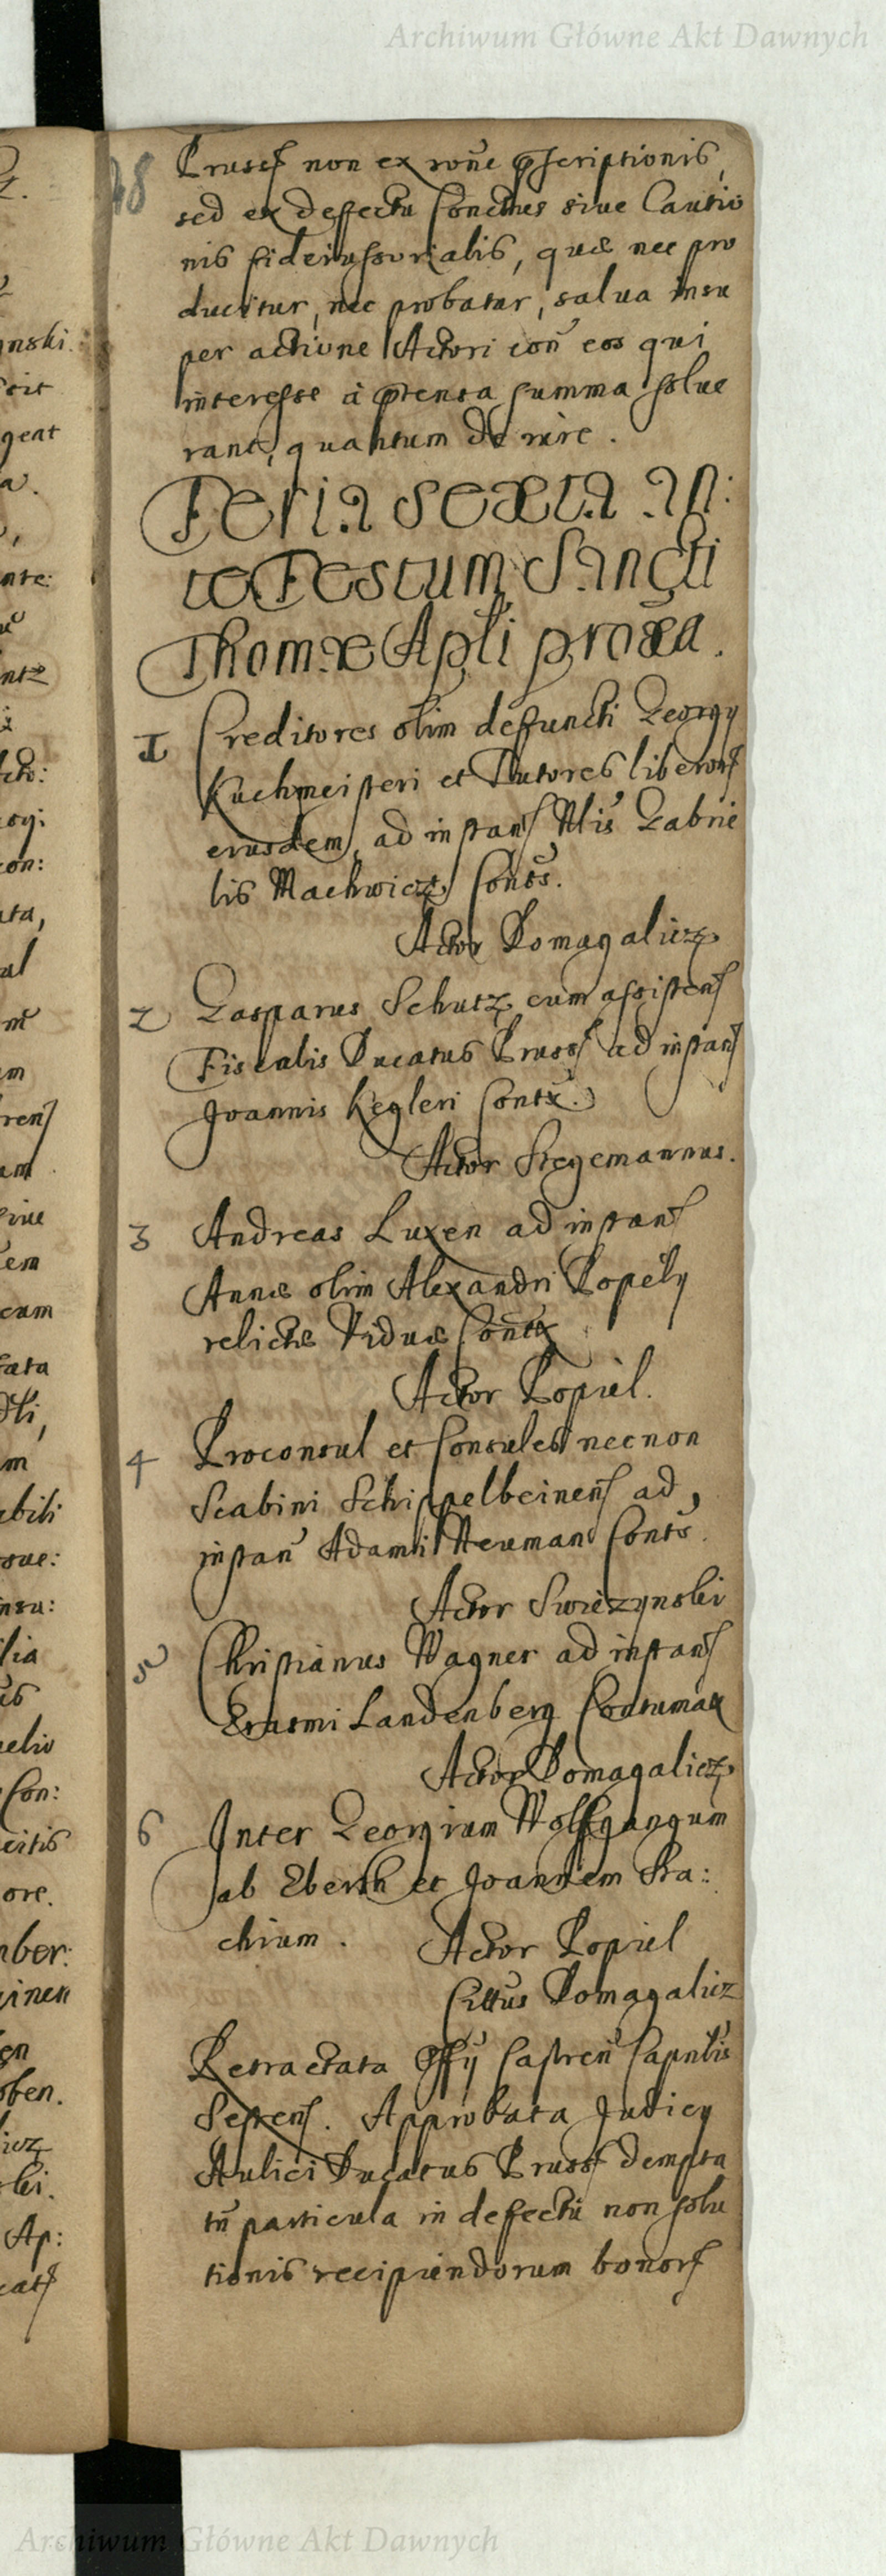 Archiwum Główne Akt Dawnych
48
Pruss non ex rõne pscriptionis,
sed ex deffectu sive Cautio
nis fideiussorialis, quæ nec pro
ducitur, nec probatur, salua insu
per actione Actori con̄ eos qui
interesse à ptensa summa solue
rant, quantum de iure.
Feria sexta an:
te Festum Sancti
Thomæ Apli proxa.
1 Creditores olim deffuncti Georgy
Kuchmeisteri et Tutores liberor
eiusdem, ad instan Nlis Gabrie
lis Machwicz Contˢ.
Actor Domagalicz
2 Gasparus Schutz cum assisten
Fiscalis Ducatus Pruss ad instan
Joannis Kegleri Contx.
Actor Stegemannus.
3 Andreas Luxen ad instan
Annæ olim Alexandri Popely
relictæ Viduæ Contx
Actor Popiel.
4 Proconsul et Consules necnon
Scabini Schippelbeinen ad
instan Adami Neuman Contˢ.
Actor Swiezynski
5 Christianus Wagner ad instan
Erasmi Landenberg Contumax
Actor Domagalicz
6 Inter Georgium Wolfgangum
ab Eberth et Joannem Bra:
chium. Actor Popiel
Cittus Domagalicz
Retractata Offy Castren Capnlis
Sesten. Approbata Judicy
Aulici Ducatus Pruss dempta
tn̄ particula in defectu non solu
tionis recipiendorum bonor
Archiwum Główne Akt Dawnych